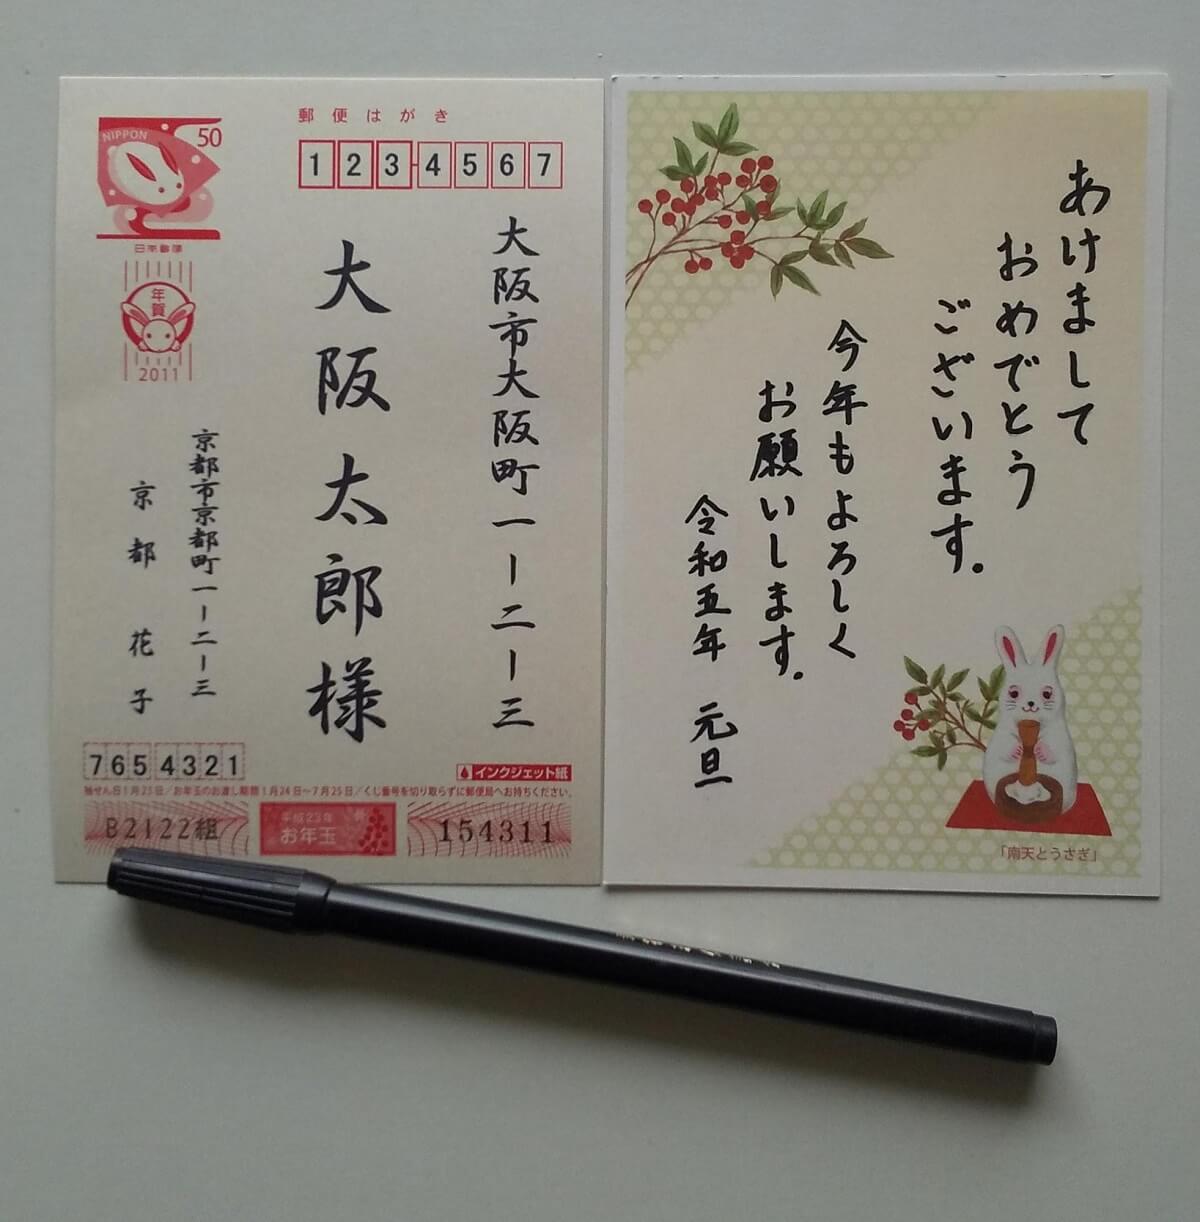 郵便はがき
NIPPON
50
日本郵便
年賀
2011
123-4567
大阪市大阪町一ー二ー三
大阪太郎様
京都市京都町一ー二ー三
京都花子
7654321
インクジェット紙
抽せん日1月23日／お年玉のお渡し期間1月24日～7月25日／くじ番号を切り取らずに郵便局へお持ちください。
B2122組
平成23年
お年玉
154311
あけまして
おめでとう
ございます。
今年もよろしく
お願いします。
令和五年 元旦
「南天とうさぎ」